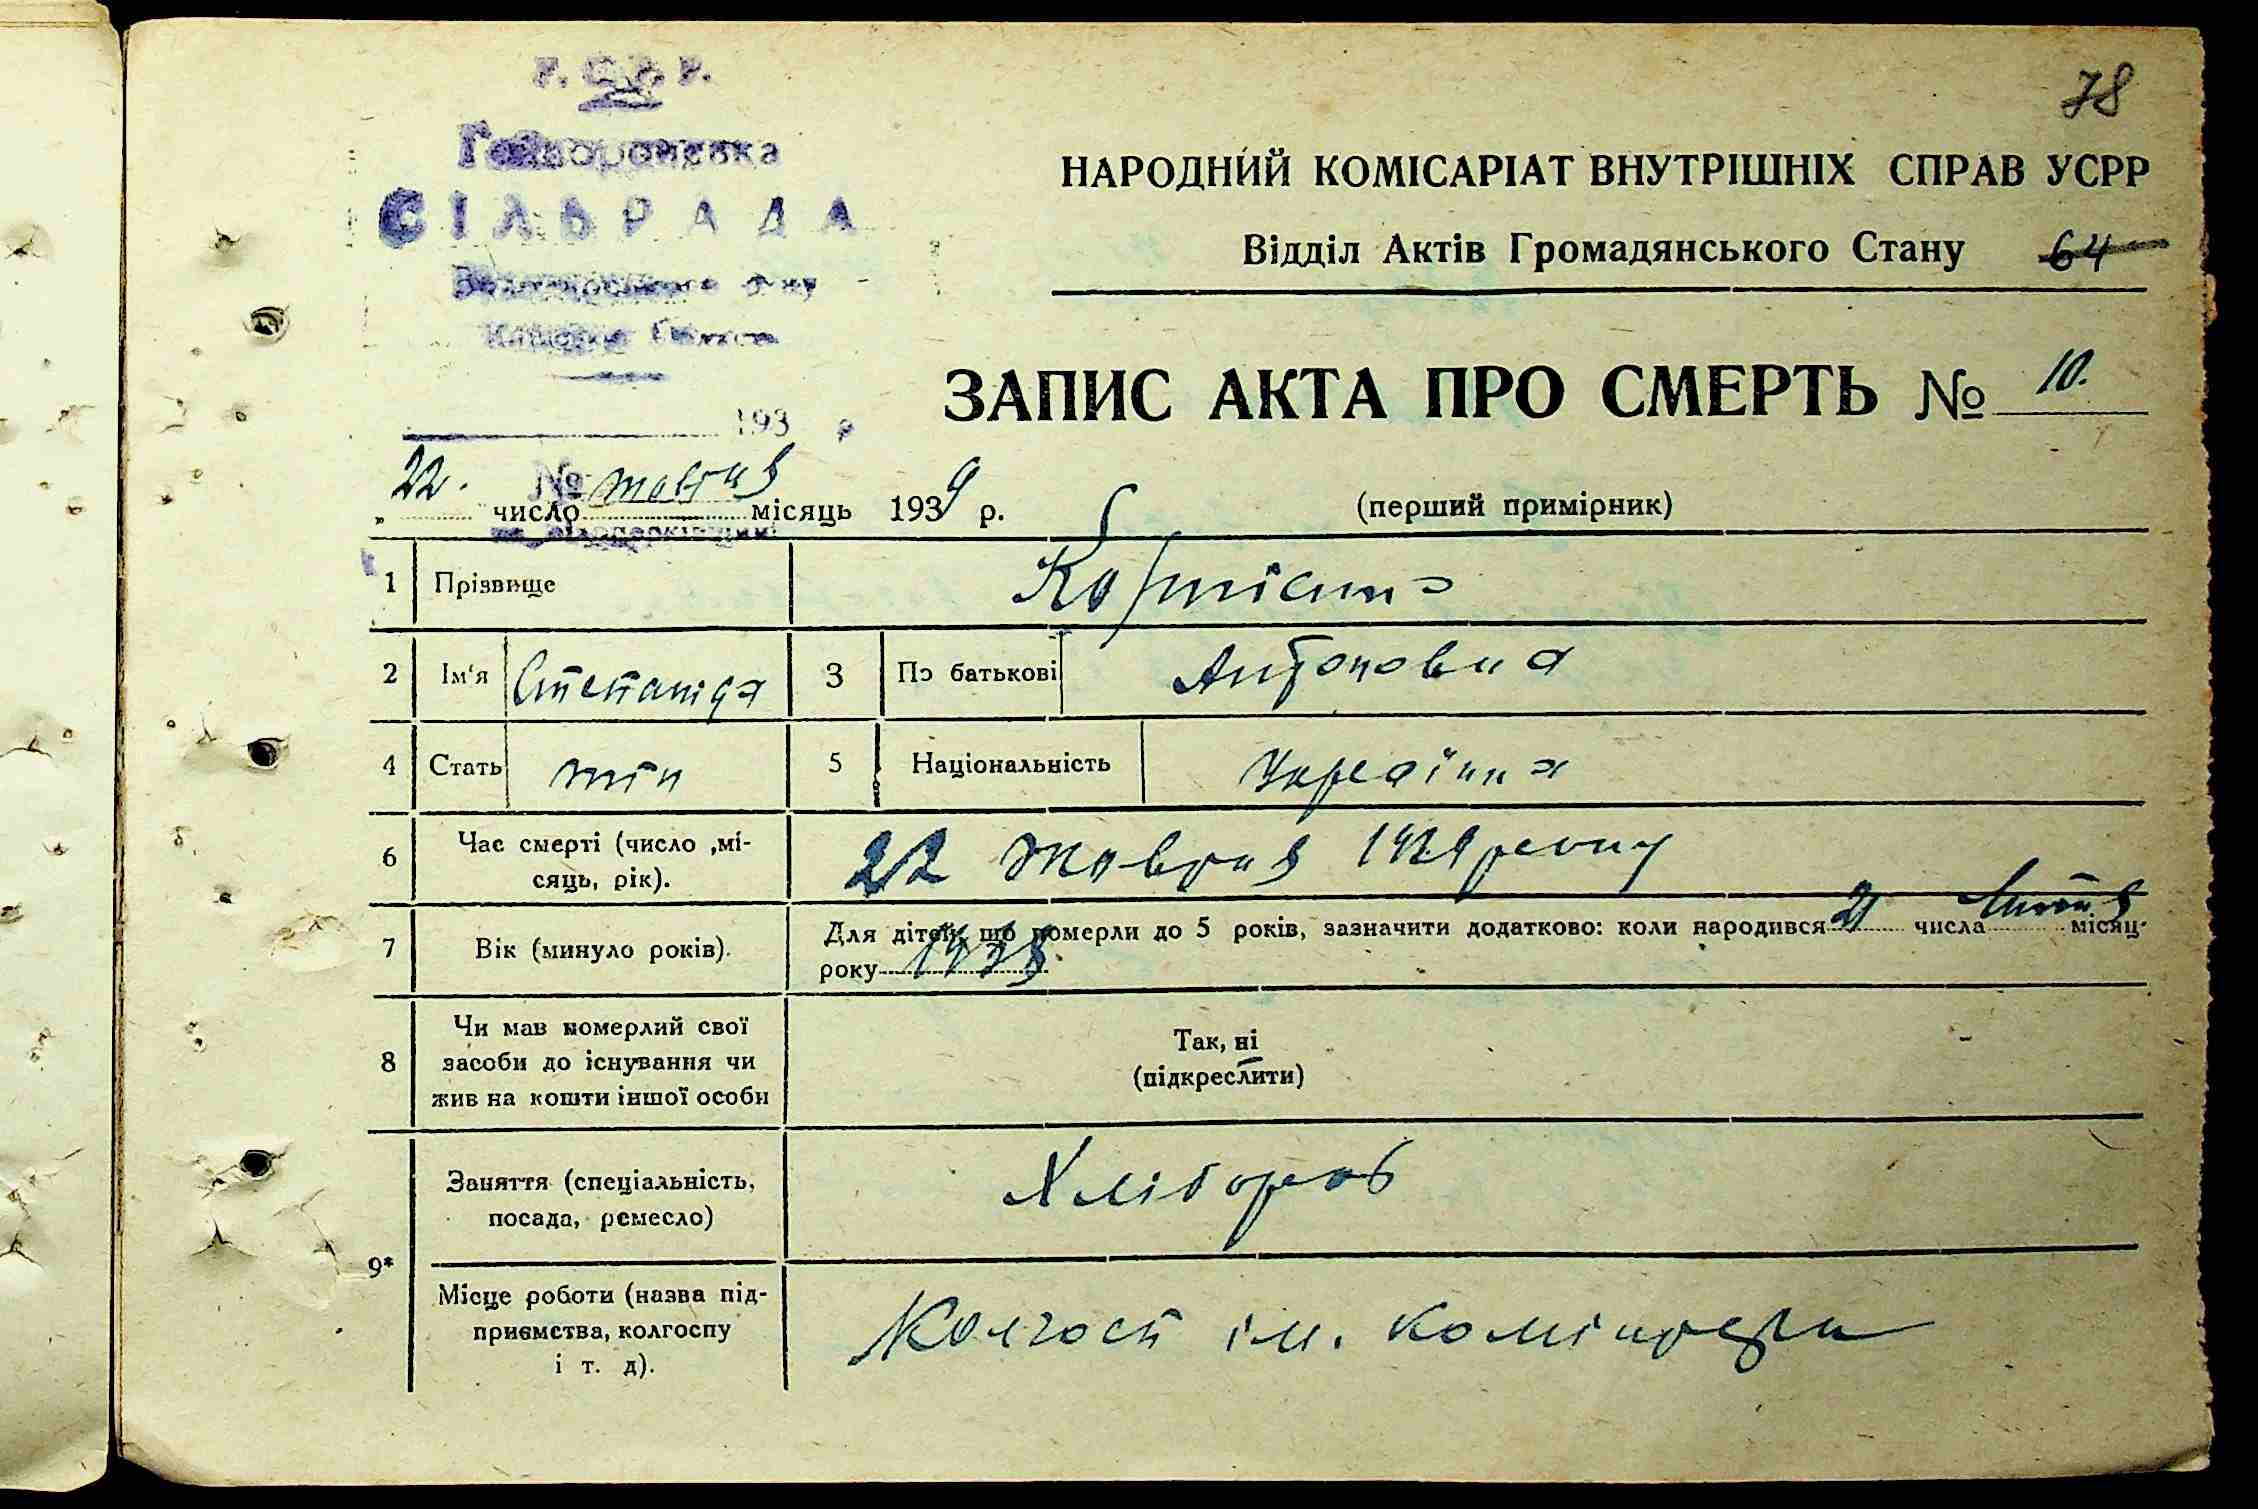 78
Гайворонська
СІЛЬРАДА
193 р
№
НАРОДНИЙ КОМІСАРІАТ ВНУТРІШНІХ СПРАВ УСРР
Відділ Актів Громадянського Стану 64
ЗАПИС АКТА ПРО СМЕРТЬ № 10.
„ 22. " число жовтня місяць 1939 р. (перший примірник)
1 Прізвище
2 Ім'я Степаніда 3 По батькові Антоновна
4 Стать жін 5 Національність Українка
6 Час смерті (число ,мі-
сяць, рік). 22 жовтня 1939 року
7 Вік (минуло років). Для дітей, що померли до 5 років, зазначити додатково: коли народився 21 числа липня місяц-
року 1938
8 Чи мав номерлий свої
засоби до існування чи
жив на кошти іншої особи
Так, ні
(підкреслити)
9*
Заняття (спеціальність,
посада, ремесло) Хлібороб
Місце роботи (назва під-
приємства, колгоспу
і т. д). Колгосп ім. Комінтерна